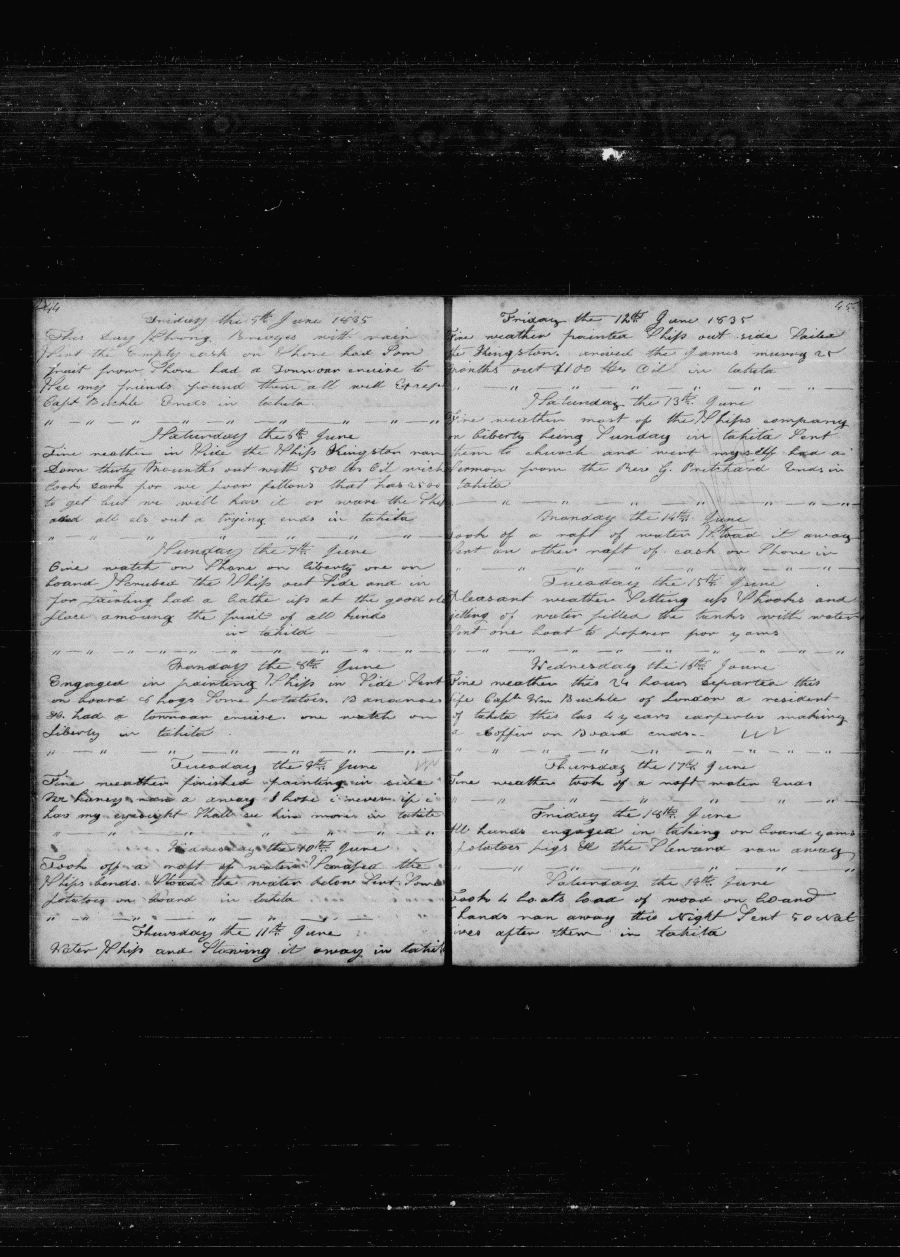 44
Friday the 5th June 1835
This day Strong Breezes with rain
Sent the Empty cask on Shore had Som
fruit from Shore had a cruise to
See my friends found them all well Except
Capt Buckle Ends in tahita
Saturday the 6th June
Fine weather in Side the Ship Kingston ran
Down thirty Mounths out with 500 bbs Oil
luck for we poor fellows that has 2500
to get but we will have it or ware the Ship
and all els out a trying ends in tahita
Sunday the 7th June
One watch on Shore on liberty one on
board Scrubed the Ship out Side and in
for painting had a bathe up at the good old
place amoung the fruit of all kinds
in tahita
Monday the 8th June
Engaged in painting Ship in Side Sent
on board 8 hogs Some potatoes Bananoes
&c. had a cruise one watch on
Liberty in tahita
Tuesday the 9th June
Fine weather finished painting in side
ran a away I hope i never if i
has my eyesight Shall see him more in tahita
Wednesday the 10th June
Took off a raft of water Scraped the
Ships bends Stoad the water below Sent Some
potatoes on board in tahita
Thursday the 11th June
Water Ship and Stowing it away in tahita
45
Friday the 12th June 1835
Fine weather painted Ship out side Sailed
the Kingston. arived the James 25
months out 1100 bbs Oil in tahita
Saturday the 13th June
Fine weather most of the Ships company
on liberty being Sunday in tahita Sent
them to church and went myself had a
Sermon from the Rev G Pritchard Ends in
tahita
Monday the 14th June
Took of a raft of water Stoad it away
Sent an other raft of cask on Shore in
Tuesday the 15th June
Pleasant weather Setting up Shooks and
getting of water filled the tanks with water
Sent one boat to for yams
Wednesday the 16th Joune
Fine weather this 24 hours Departed this
life Capt Wm Buckle of London a resident
of tahita this las 4 years carpenter making
a Coffin on Board ends
Thursday the 17th June
Fine weather took of a raft water Ends
Friday the 18th June
All hands engaged in taking on board yams
potatoes pigs &c the Steward ran away
Saturday the 19th June
Took 4 boats load of wood on board
hands ran away this Night Sent 50 Nat
ives after them in tahita